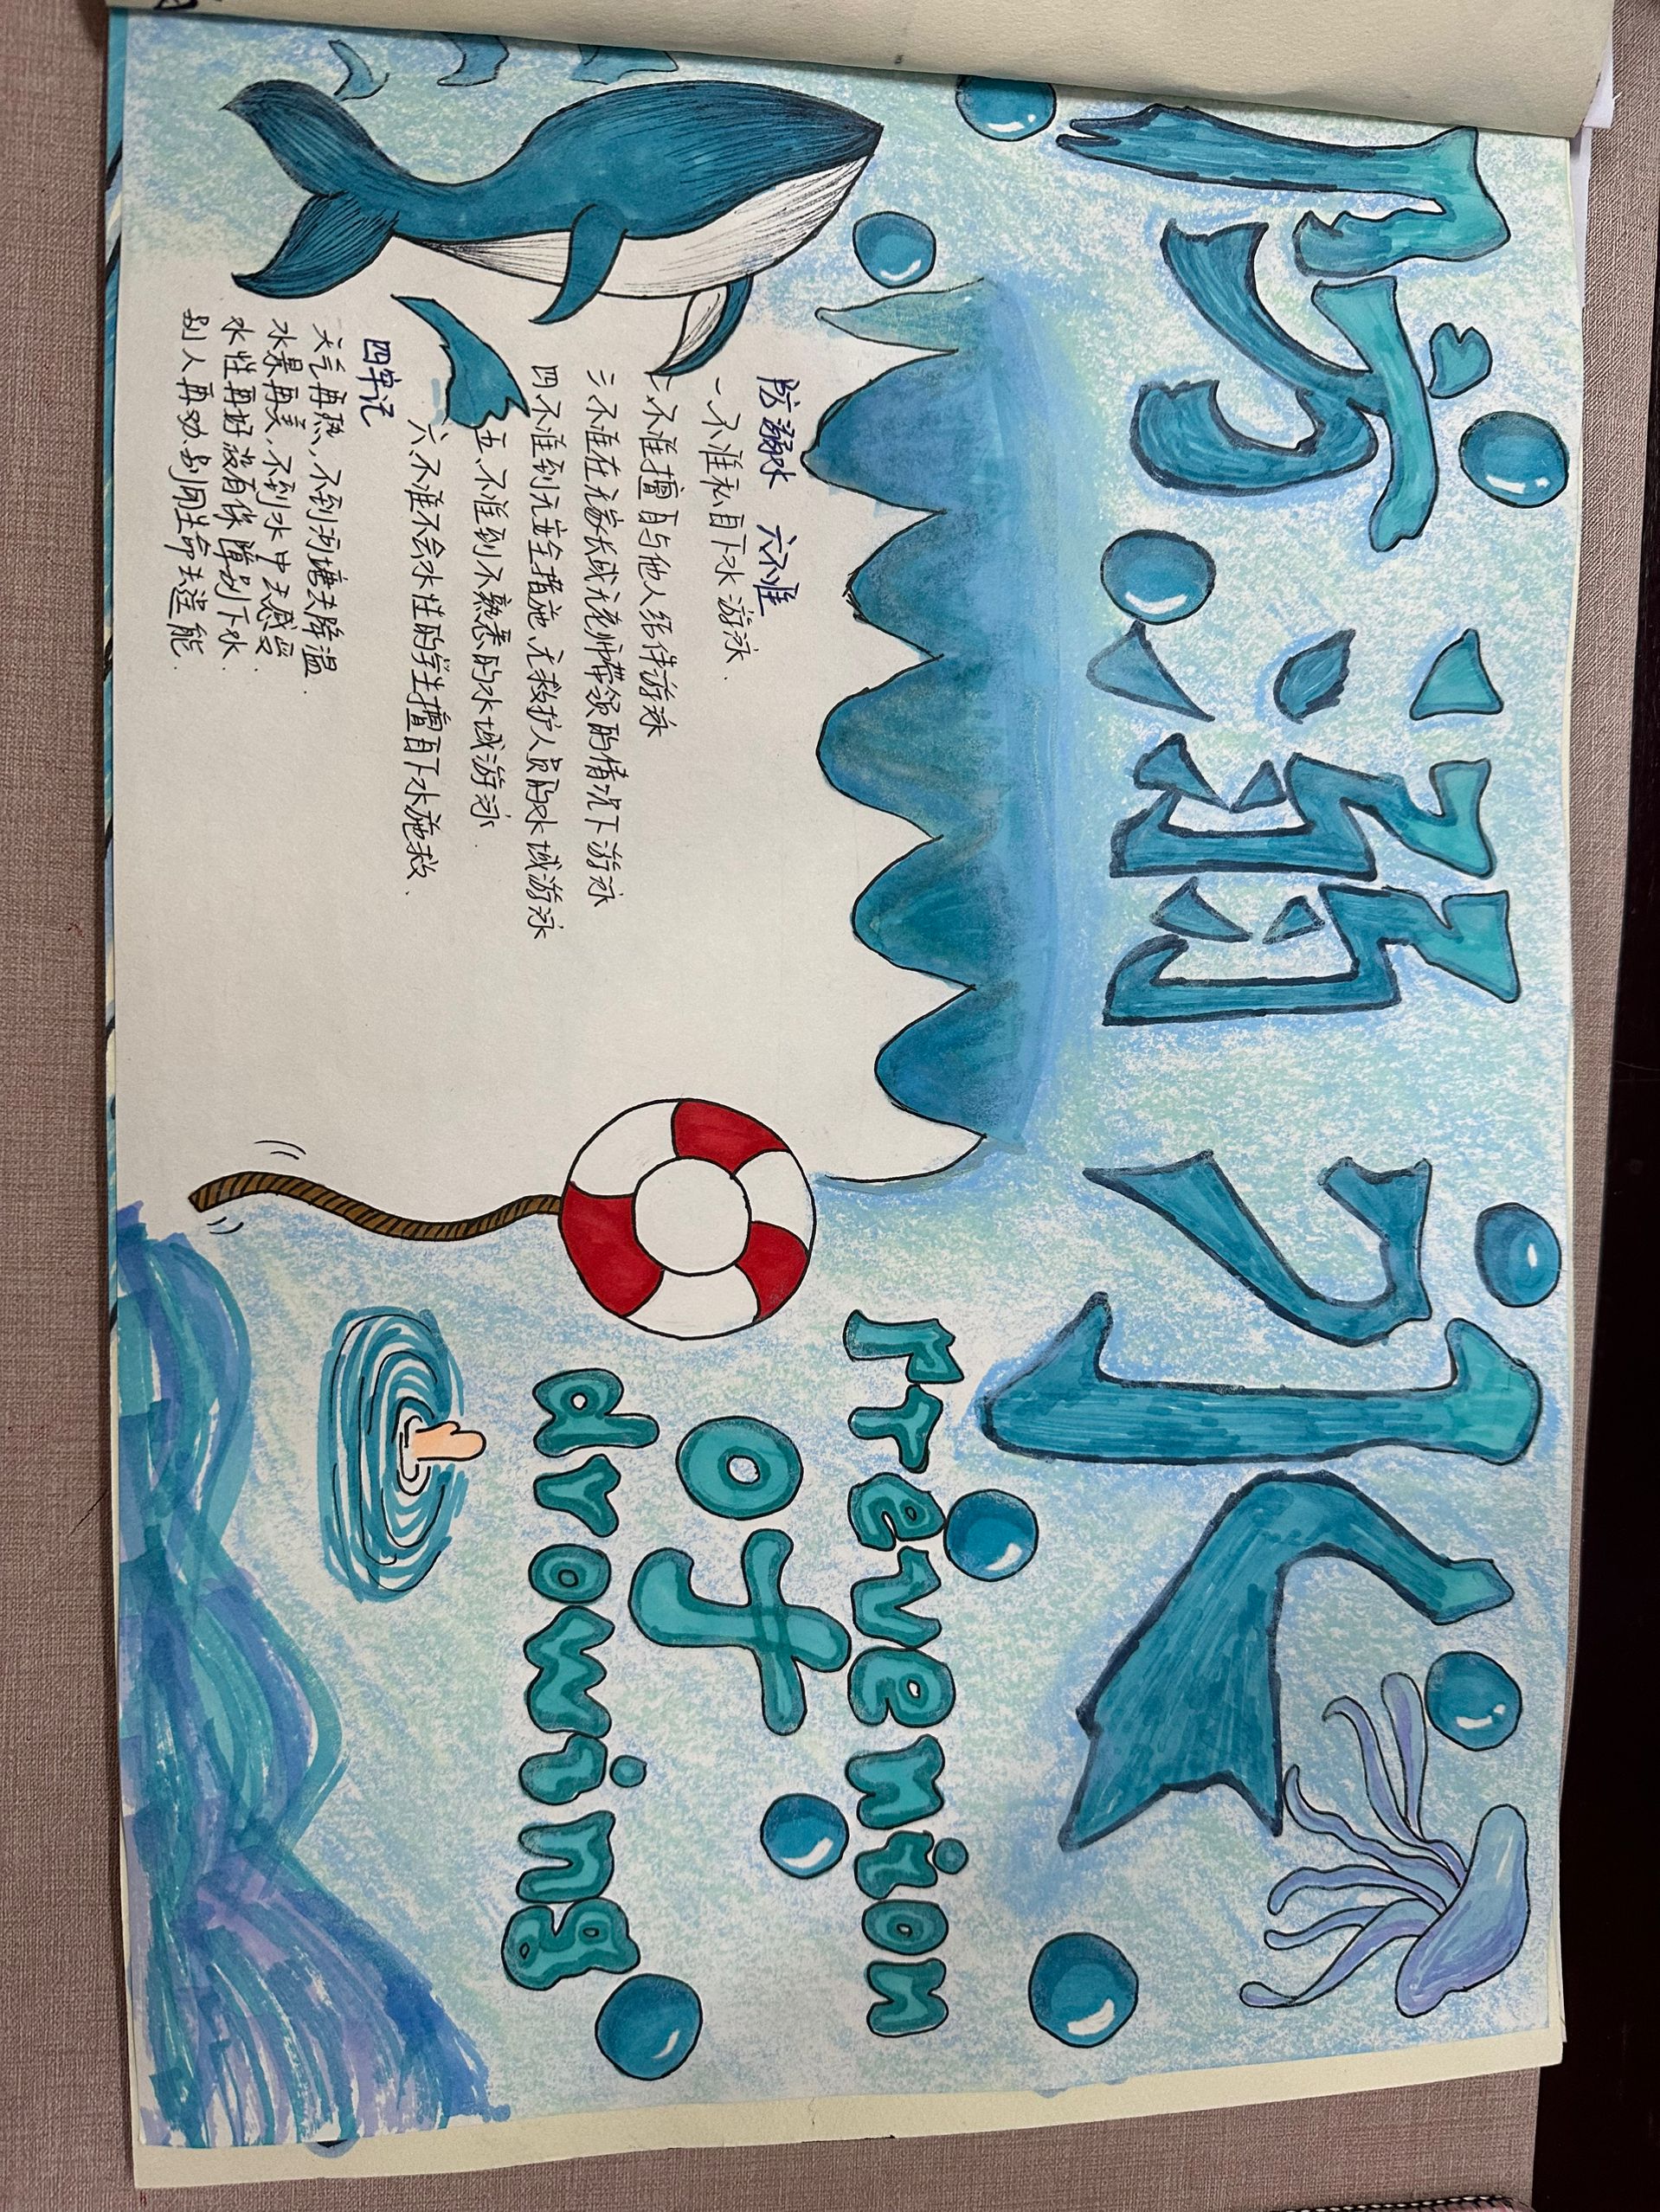 防溺水
Prevention
of
drowning
防溺水 六不准
一不准私自下水游泳.
二不准擅自与他人结伴游泳
三不准在无家长或无老师带领的情况下游泳
四不准到无安全措施、无救护人员的水域游泳
五、不准到不熟悉的水域游泳.
六、不准不会水性的学生擅自下水施救、
四牢记
天气再热,不到河塘去降温.
水景再美,不到水中去感受.
水性再好没有保障别下水.
别人再劝、别用生命去逞能.